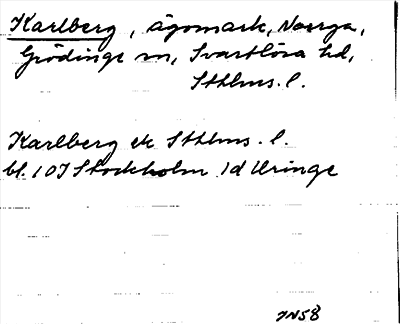 Karlberg, ägomark, Norrga,
Grödinge sn, Svartlösa hd,
Sthlms. l.
Karlberg ek Sthlms. l.
bl. 107 Stockholm 1d Uringe
JN58